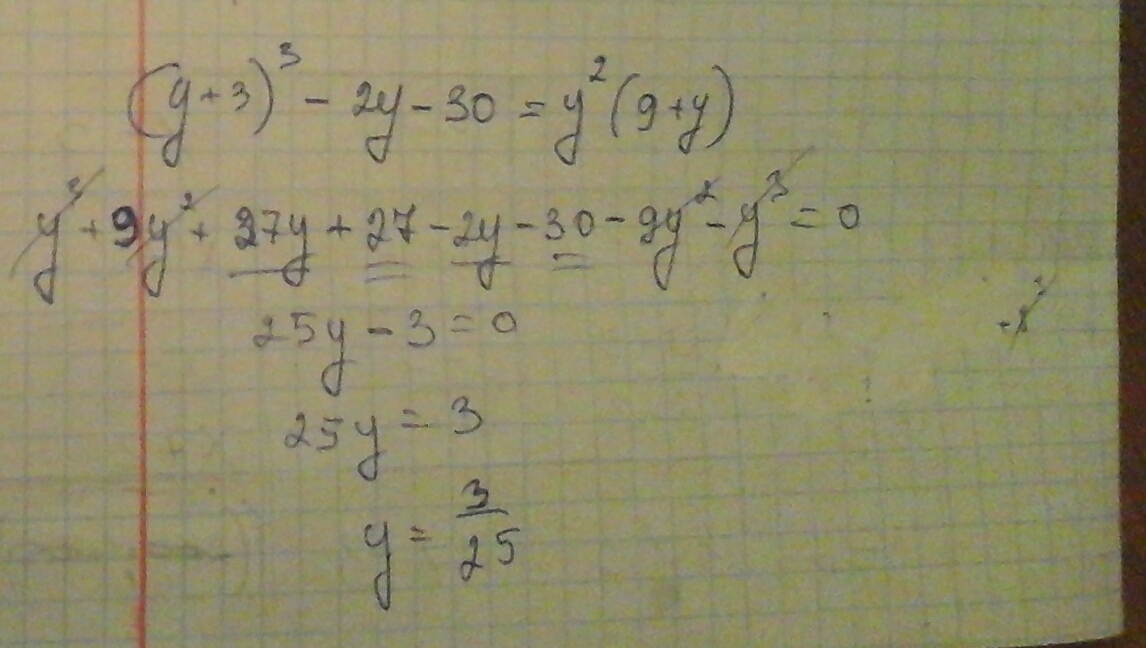 (y+3)³ - 2y - 30 = y²(9+y)
y³ + 9y² + 27y + 27 - 2y - 30 - 9y² - y³ = 0
25y - 3 = 0
25y = 3
y = 3/25